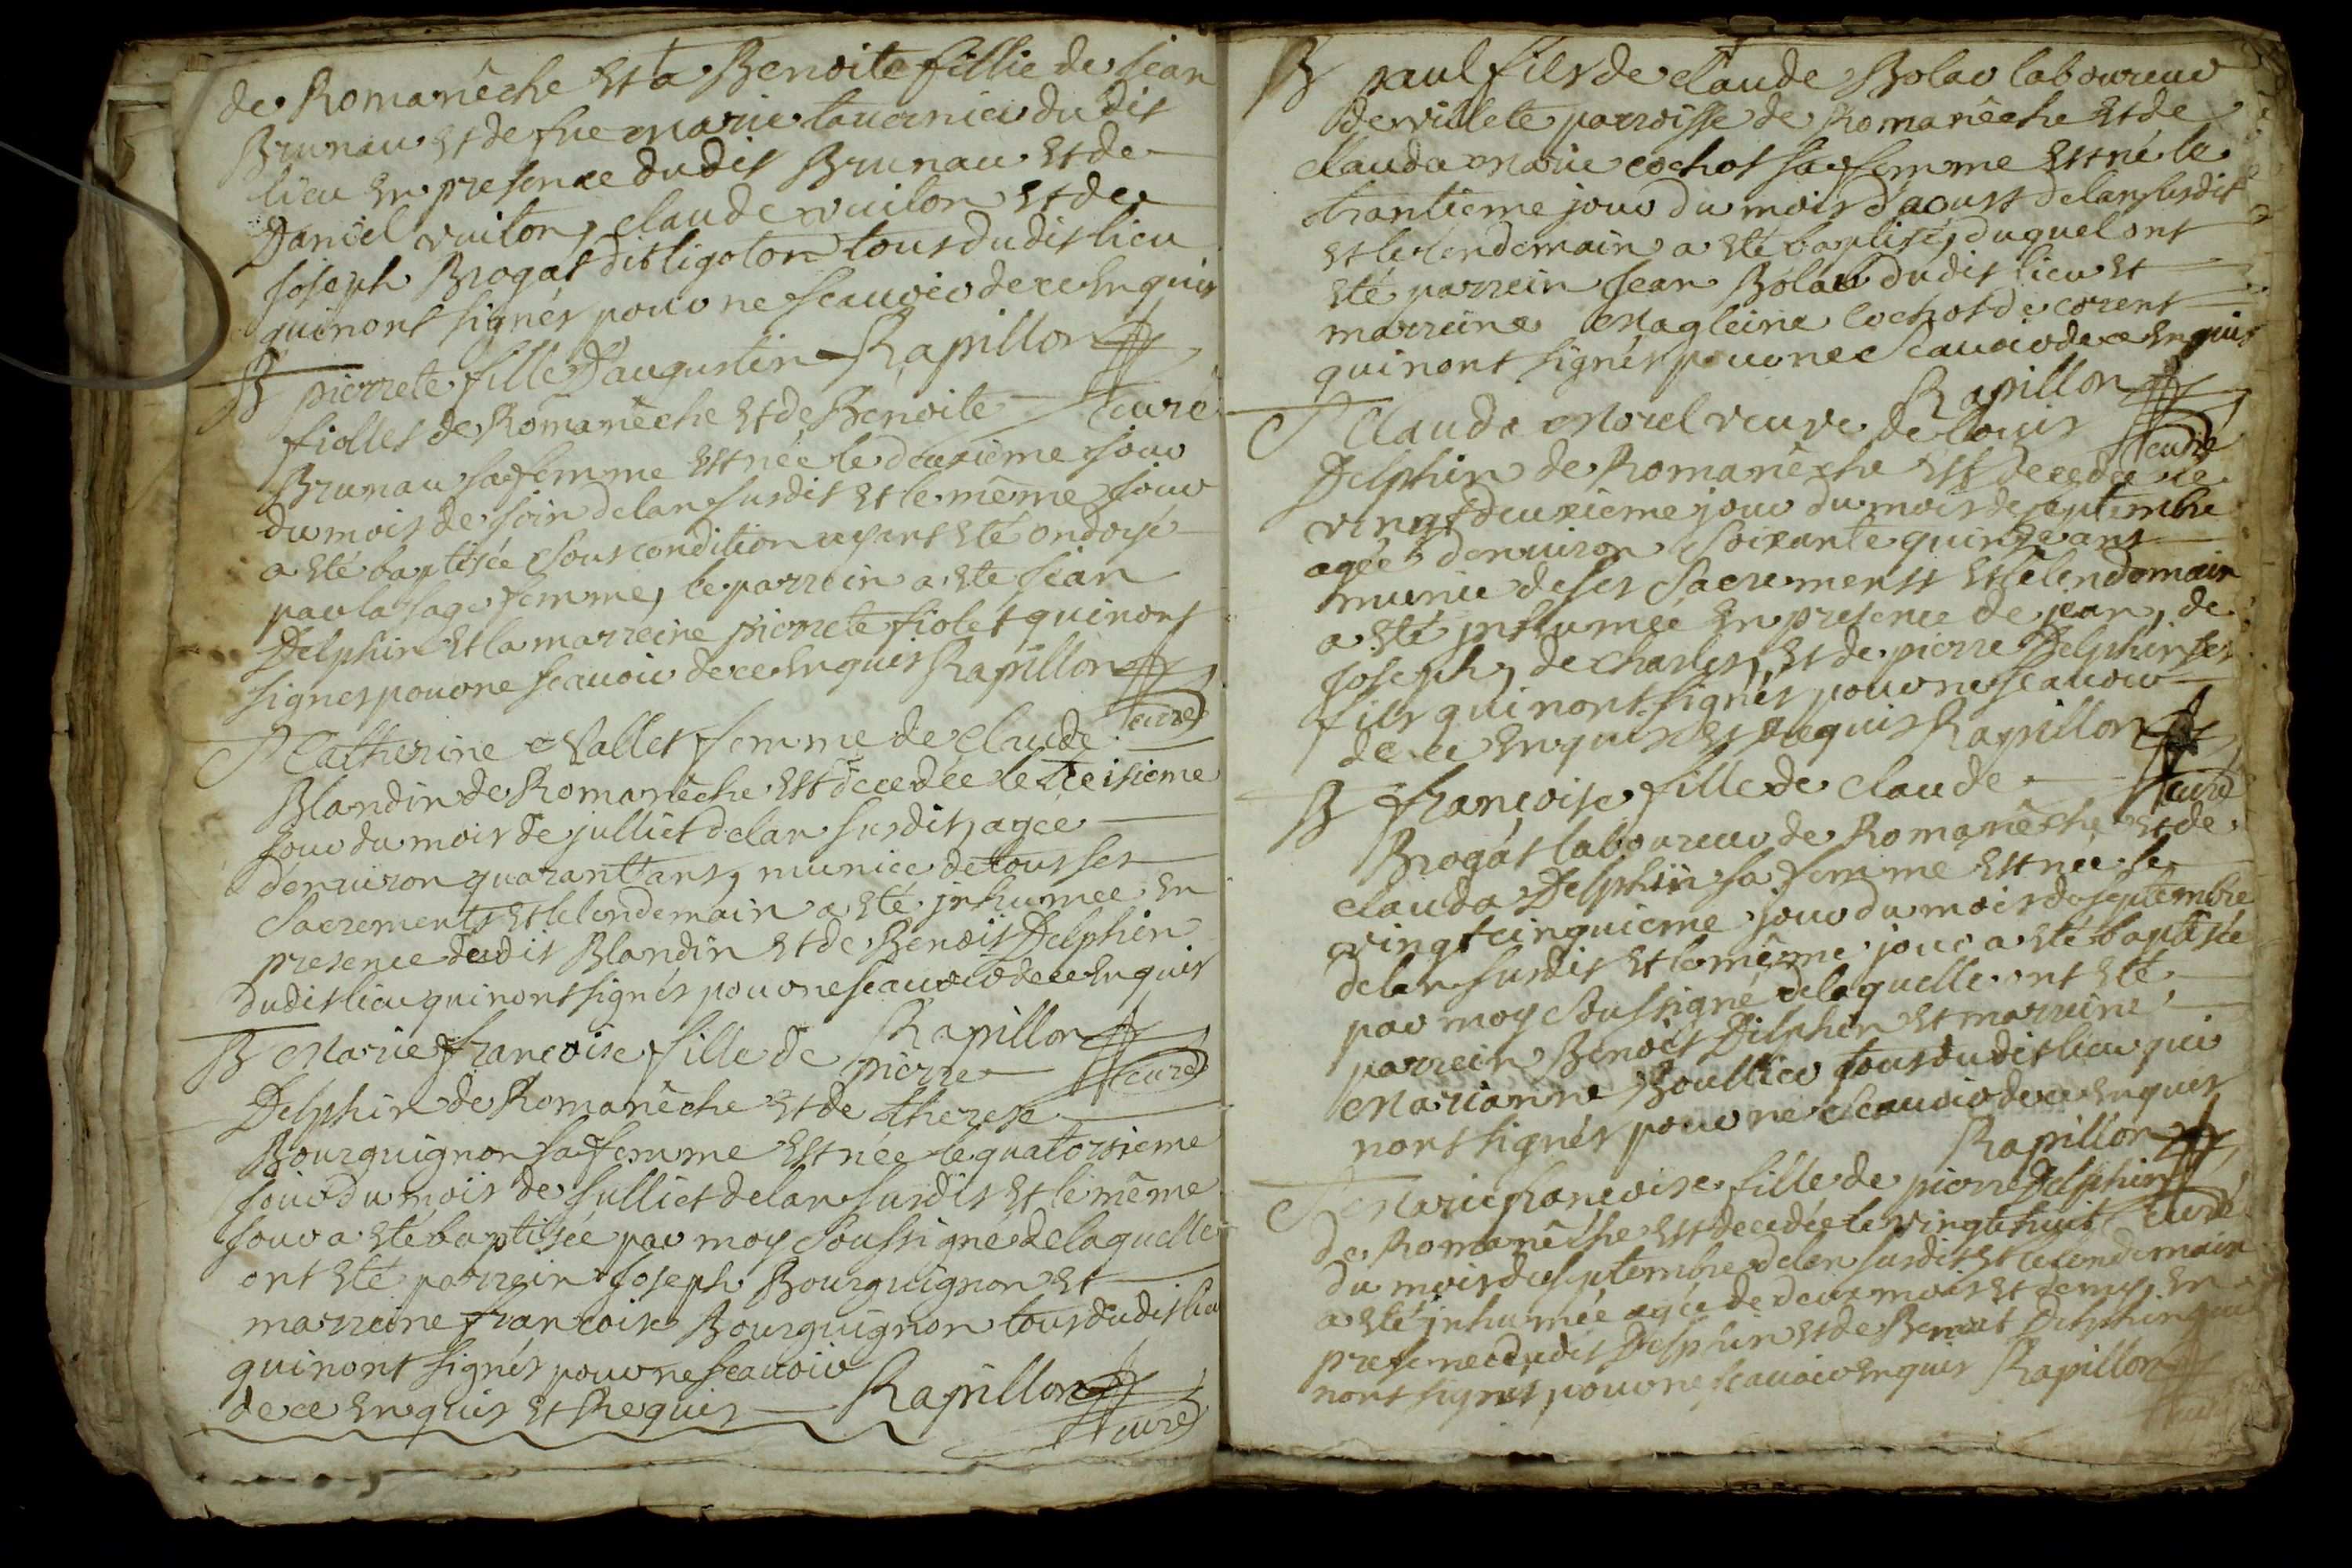 de Romanêche et a Benoite fillie de jean
Brunau et de fue Marie tavernier du dit
lieu en presence dudit Brunau et de
Daniel vuiton, claude vuiton et de
joseph Brogat dit ligoton tous dudit lieu
qui nont signés pour ne scauoir de ce enquis
Rapillon
B pierrete fille d'augustin curé
fiollet de Romanêche et de Benoite
Brunau sa femme est née le deuxième jour
du mois de join de lan susdit et le même jour
a eté baptisée sous condition ayant eté ondoyé
par la sage femme, le parrein a ete jean
Delphin et la marreine pierrete fiolet qui nont
signes pour ne scauoir de ce enquis Rapillon
curé
Catherine Vallet femme de claude
Blandin de Romanêche est decedée le treisieme
jour du mois de julliet de lan susdit, agée
denuiron quarant ans, munice de tous ses
Sacrements et le lendemain a eté jnhumee en
presence dudit Blandin et de Benoit Delphin
dudit lieu qui nont signés pour ne scauoir de ce enquis
Rapillon
B Marie françoise fille de pierre curé
Delphin de Romanêche et de therese
Bourguignon sa femme est née le quatorsieme
jour du mois de julliet de lan susdit et le même
jour a eté baptisée par moy soussigné de laquelle
ont eté parrein joseph Bourguignon et
marreine francoise Bourguignon tous dudit lieu
qui nont signés pour ne scauoir
de ce enquis et Requis Rapillon
curé
B paul fils de claude Bolar laboureur
de villete parroisse de Romanêche et de
clauda Marie cochot sa femme est né le
trantieme jour du mois d'aoust de lan susdit
et le lendemain a eté baptisé, duquel ont
eté parrein jean Bolar dudit lieu et
marreine Magleine cochot de corent
qui nont signés pour ne scauoir de ce enquis
Rapillon
Clauda Morel veuve de louis curé
Delphin de Romanêche est decedée le
vingt deuxieme jour du mois de septembre
agée denuiron soixante quinze ans
munie de ses Sacrements et le lendemain
a eté jnhumée en presence de jean, de
joseph, de charles, et de pierre Delphin ses
fils qui nont signés pour ne scauoir
de ce enquis et Requis Rapillon
B françoise fille de claude curé
Brogat laboureur de Romanêche et de
clauda Delphin sa femme est née le
vingt cinquieme jour du mois de septembre
de lan susdit et le même jour a eté baptisée
par moy soussigné de laquelle ont eté
parrein Benoit Delphin et marreine
Marianne Boullier tous dudit lieu qui
nont signés pour ne scauoir de ce enquis
Rapillon
Marie francoise fille de pierre Delphin
de Romanêche est decedée le vingt huit curé
du mois de septembre de lan susdit et le lendemain
a eté jnhumée agée de deux mois et demy en
presence dudit Delphin et de Benoit Delphin qui
nont signés pour ne scauoir enquis Rapillon
curé